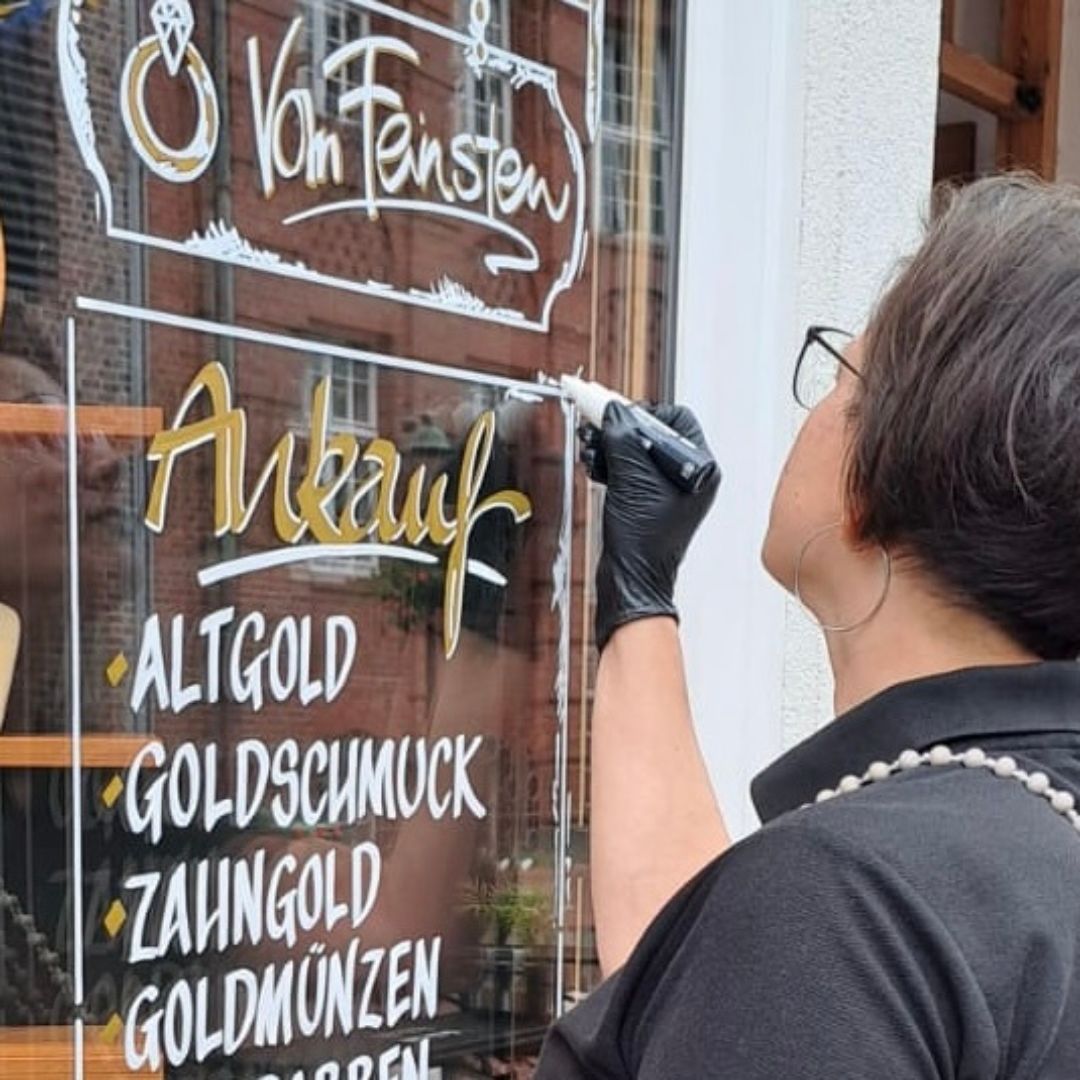 Vom Feinsten
Ankauf
ALTGOLD
GOLDSCHMUCK
ZAHNGOLD
GOLDMÜNZEN